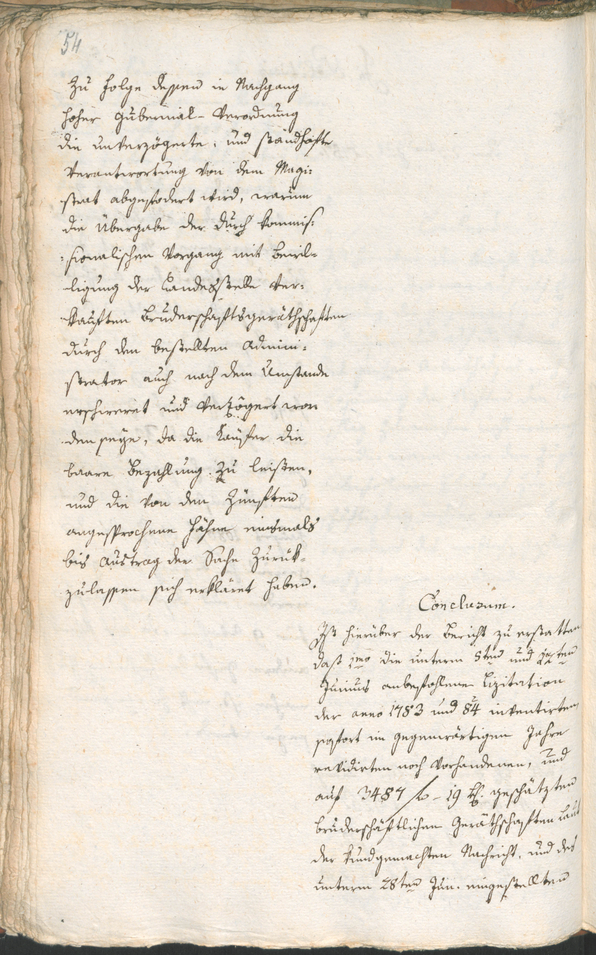 54
Zu Folge dessen in Nachgang
hoher Gubernial-Verordnung
die unverzögerte, und standhafte
Verantwortung von dem Magi=
strat abgefodert wird, warum
die Übergabe der durch kommis=
=sionalischen Vorgang mit Bewil=
ligung der Landesstelle ver=
kauften Bruderschaftsgeräthschaften
durch den bestellten Admini=
strator auch nach dem Umstande
erschweret und verzögert wor
den seye, da die Käufer die
baare Bezahlung zu leisten,
und die von den Zünften
angesprochene Fähne einsmals
bis Austrag der Sache zurük=
zulassen sich erkläret haben.
Conclusum.
Ist hierüber der Bericht zu erstatten
daß 1mo die unterm 8ten und
Junius anbefohlene Lizitation
der anno 1783 und 84 inventirten
sofort im gegenwärtigen Jahre
revidirten noch vorhandenen, und
auf 3487 f - 19 kr. geschätzten
bruderschäftlichen Geräthschaften laut
der kundgemachten Nachricht, und des
unterm 28ten Jun. eingestellten